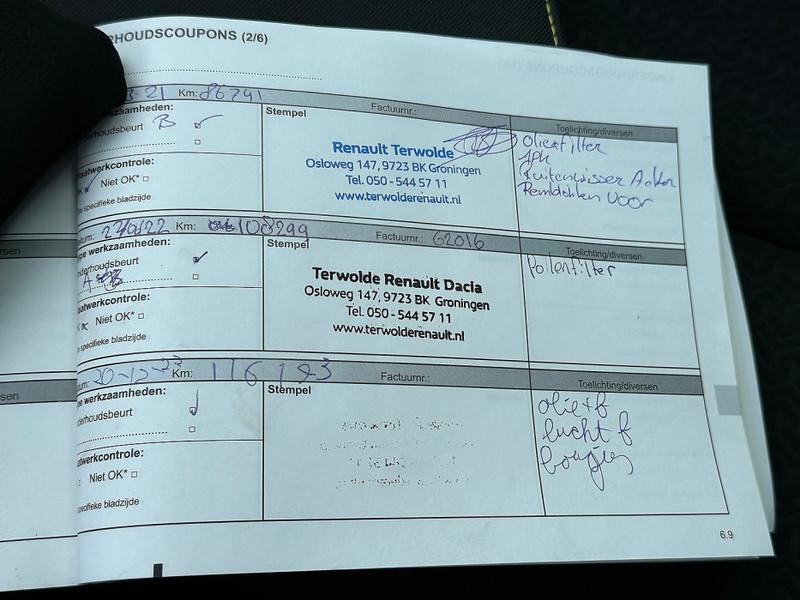 RHOUDSCOUPONS (2/6)
-21 Km: 86741 Factuurnr.:
zaamheden:
derhoudsbeurt B
Niet OK*
specifieke bladzijde
Stempel
Renault Terwolde
Osloweg 147, 9723 BK Groningen
Tel. 050 - 544 57 11
www.terwolderenault.nl
Toelichting/diversen
oliefilter
Apk
Ruitenwisser Achter
Remblokken Voor
tum: Km: 108299 Factuurnr.: 62016
pe werkzaamheden:
nderhoudsbeurt
aatwerkcontrole:
Niet OK*
specifieke bladzijde
Stempel
Terwolde Renault Dacia
Osloweg 147, 9723 BK Groningen
Tel. 050 - 544 57 11
www.terwolderenault.nl
Toelichting/diversen
Pollenfilter
tum: 20-12-23 Km: 116 193 Factuurnr.:
e werkzaamheden:
derhoudsbeurt
atwerkcontrole:
Niet OK*
specifieke bladzijde
Stempel
Toelichting/diversen
olie+f
lucht f
bougies
6.9